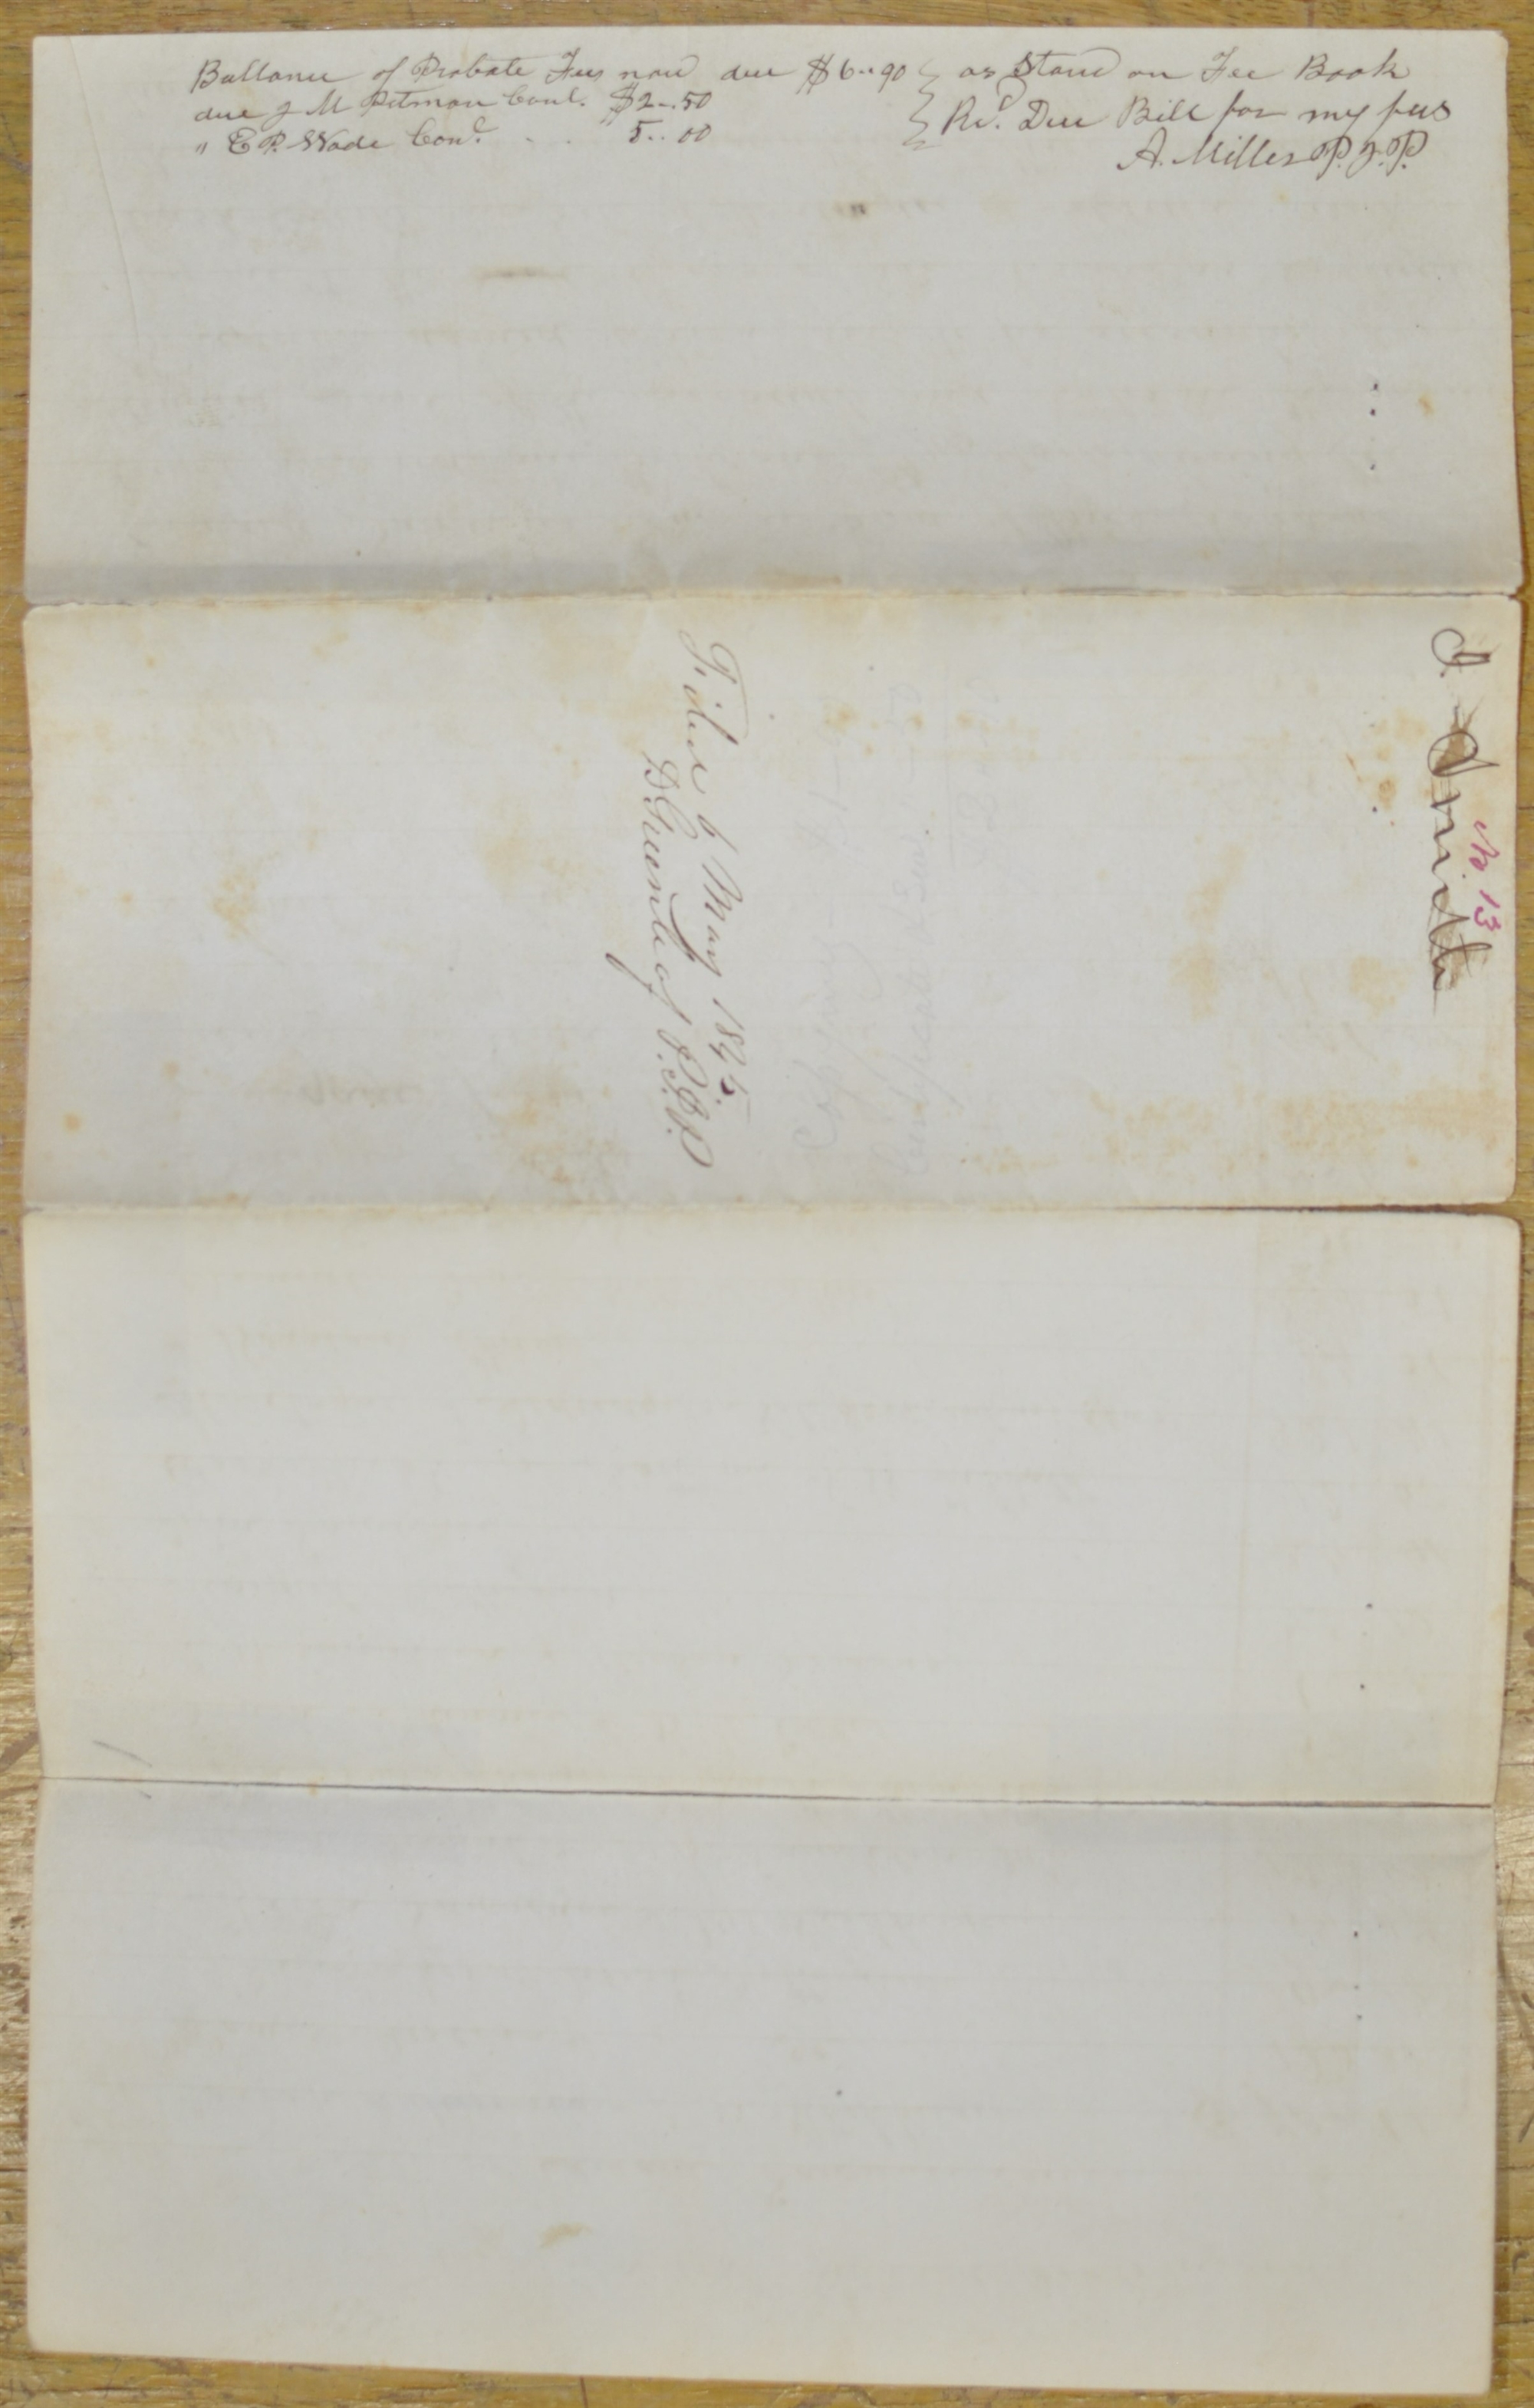 Ballance of Probate Fees now due $6..90 } as Stand on Fee Book
due J M Pitman Coul. $2-.50 } Rd. Due Bill for my fees
" E P. Wade Cond. . . 5..00
A. Miller P. J. P.
Filed 6 May 1845
D Greenleaf P.J.P.
No 13